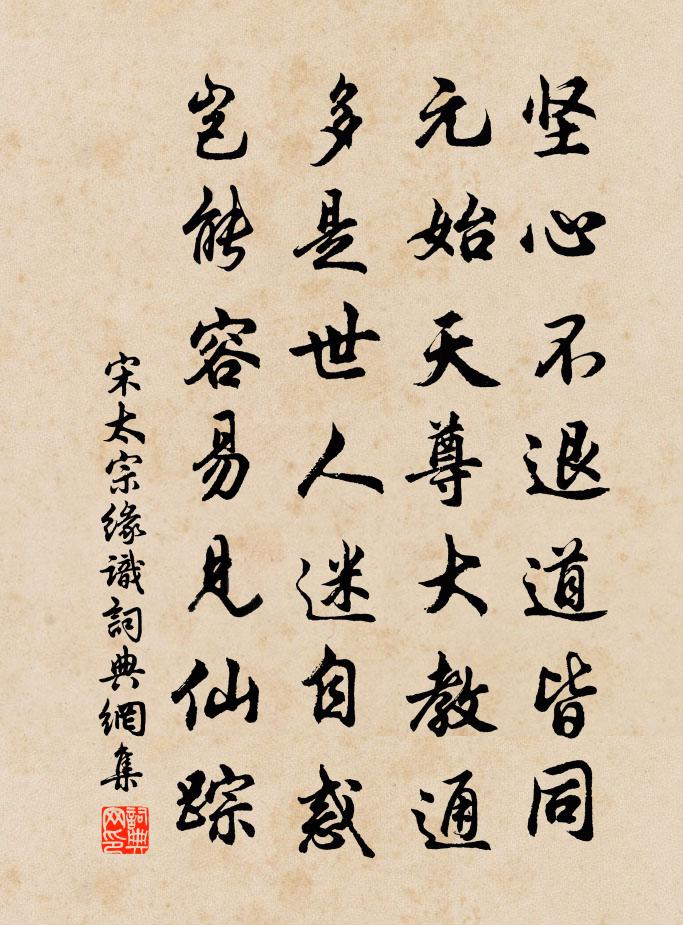 坚心不退道皆同
元始天尊大教通
多是世人迷自惑
岂能容易见仙踪
宋太宗缘識詞典網集
詞典网印